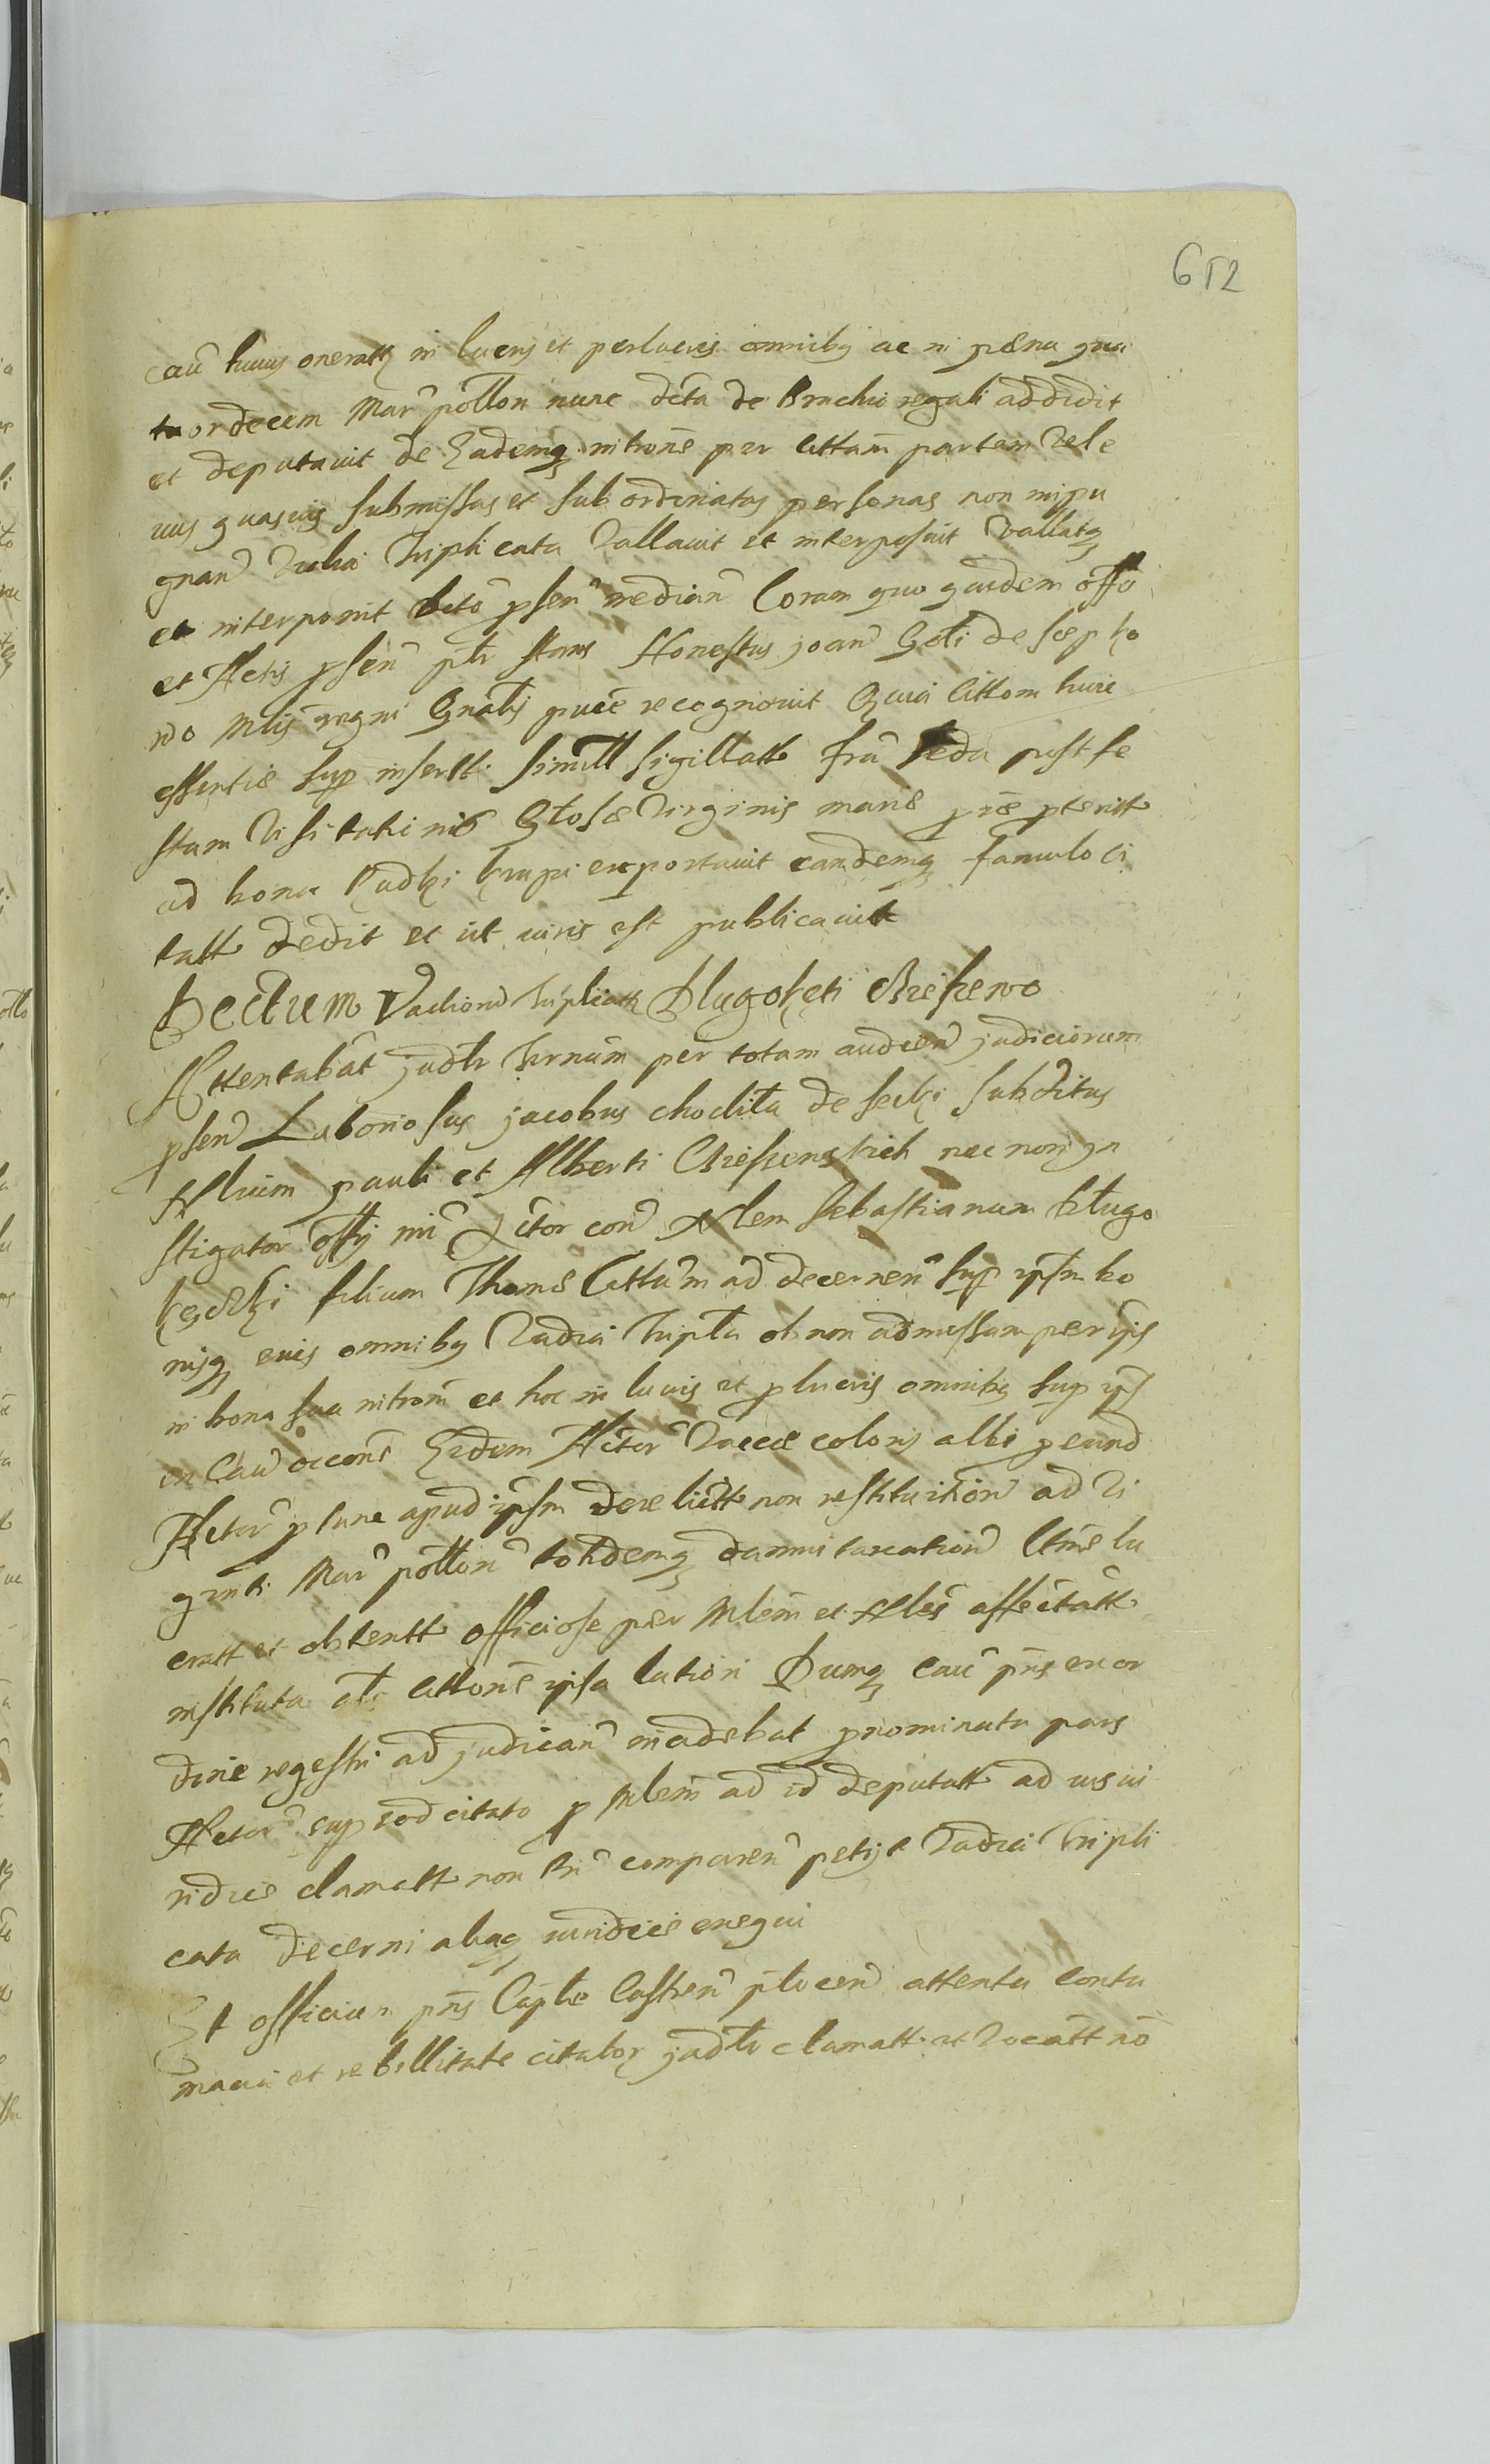 652
cau huius oneratt in lucris et perlucris omnibq ac in pœna qua
tuordecem Mar pollon nunc dcta de Brachio regali addidit
et deputavit de Eademq intrōne per cittām partem vel e
ius quasvis submissas et subordinatas personas non impu
gnand vadia Triplicata vallavit et interposuit vallatq
et interponit dcto pñsen median Coram quo quidem offo
et Actis psen pntr stans Honestus joan Goti de
Mlis regni Gnalis recognovit Quia cittom huic
essentiæ sup insertt simill sigillatt fra 2eda post fe
stum Visitationis Gtosæ Virginis mariæ pxe pteritt
ad bona Krupi exportavit eandemq famulo ci
tatt dedit et ut iuris est publicavitt
Dectum Vadiorū Triplicatt Dlugokęti Brzescewo
Attentabat judtr Ternum per totam audien judiciorum
psen Laboriosus jacobus choclita de secki subditus
Nlium pauli et Alberti Brzescenskich nec non jn
stigator offij Actor con Nlem Sebastianum Dlugo
kęczki filium Thomæ Cittum ad decernen sup ipsm bo
nisq eius omnibq Vadia Tripta ob non admissam per ips
in bona sua intrōm et hoc in lucris et plucris omnibq sup ips
in Cau occone Eiedem Actor vaccæ coloris albi p eund
Actor p tunc apud ipsm derelictt non restitution ad vi
ginti Mar pollon totidemq damni taxation lu
cratt et obtentt officiose per Mlem et Nles affectatt
instituta als cittone ipsa latiori Dumq cau pns ex or
dine regestri ad judican incidebat pnominata pars
Actor sup eod citato p Mlem ad id deputatt ad
ridice clamatt non tn comparen petijt vadia tripli
cata decerni aliaq iuridice exequi
Et officium pns Captle Castren ptocen attenta contu
macia et rebellitate citator judtr clamatt et vocatt nō